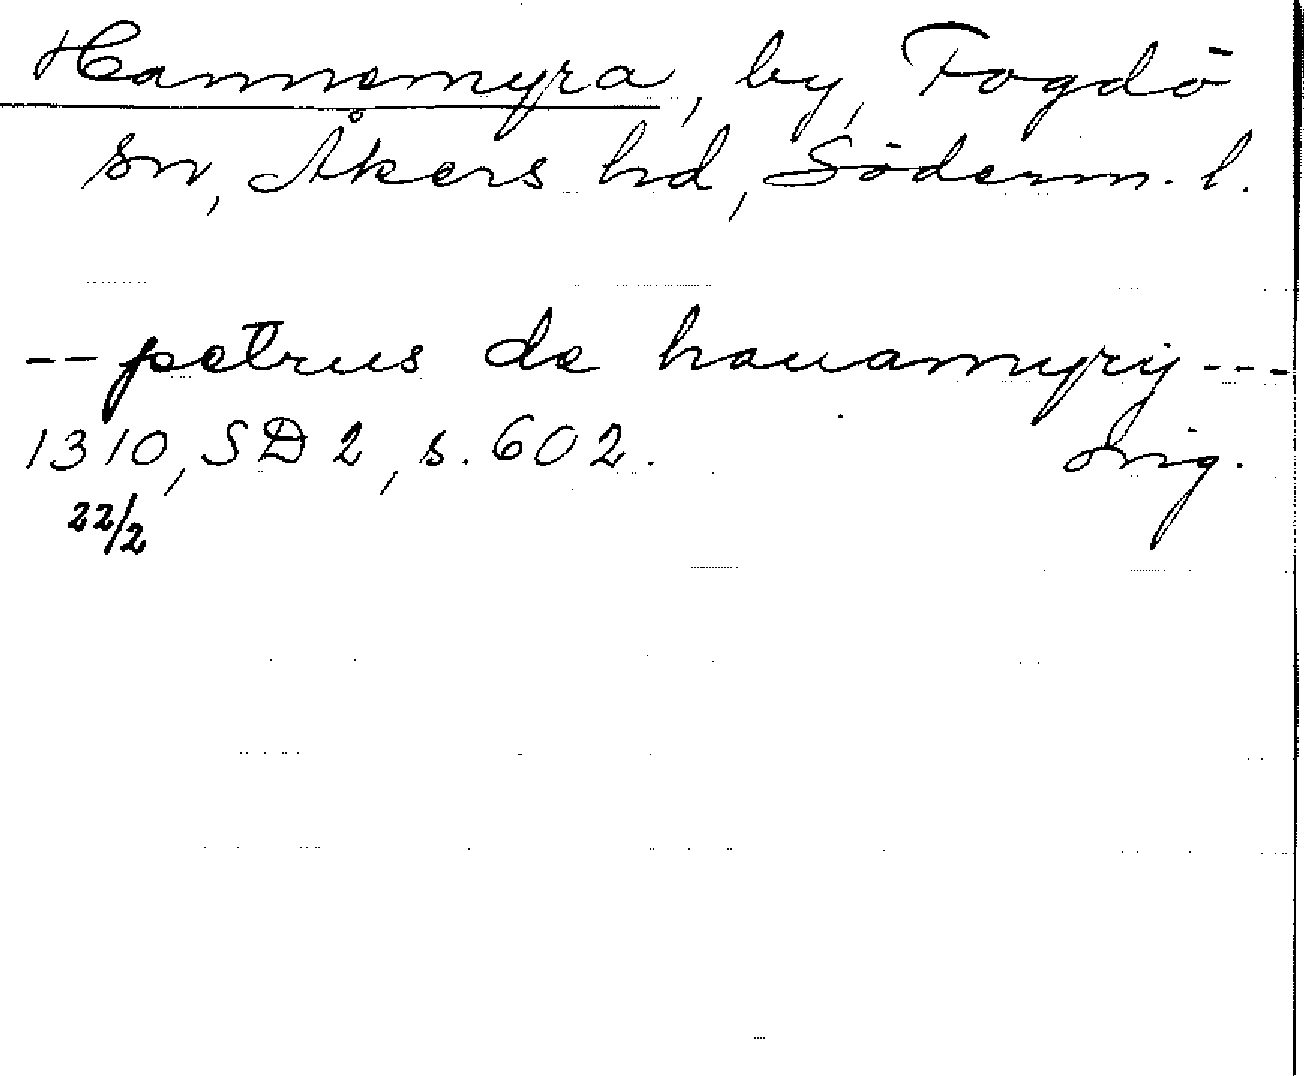 Hannamyra, by, Fogdö
sn, Åkers hd, Söderm. l.
-- petrus de hauamyrij ---
1310, SD 2, s. 602. orig.
22/2